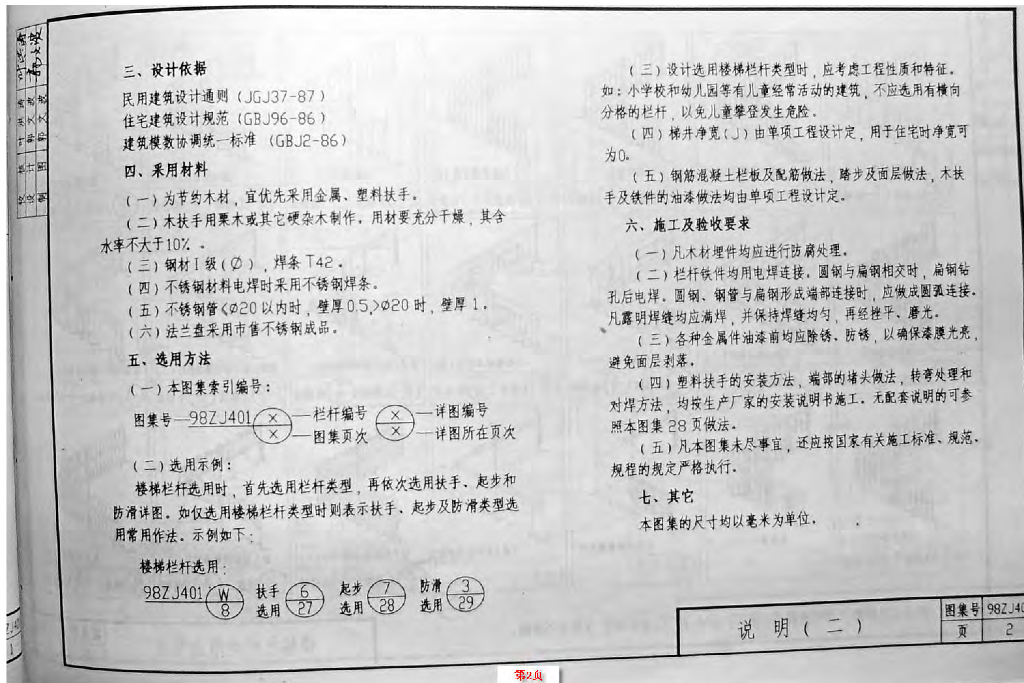 三、设计依据
民用建筑设计通则(JGJ37-87)
住宅建筑设计规范(GBJ96-86)
建筑模数协调统一标准 (GBJ2-86)
四、采用材料
(一)为节约木材,宜优先采用金属、塑料扶手。
(二)木扶手用栗木或其它硬杂木制作。用材要充分干燥,其含
水率不大于10%。
(三)钢材Ⅰ级(∅),焊条T42。
(四)不锈钢材料电焊时采用不锈钢焊条。
(五)不锈钢管<∅20以内时,壁厚0.5,>∅20时,壁厚1。
(六)法兰盘采用市售不锈钢成品。
五、选用方法
(一)本图集索引编号:
图集号 98ZJ401 × 栏杆编号 × 详图编号
× 图集页次 × 详图所在页次
(二)选用示例:
楼梯栏杆选用时,首先选用栏杆类型,再依次选用扶手、起步和
防滑详图。如仅选用楼梯栏杆类型时则表示扶手、起步及防滑类型选
用常用作法。示例如下:
楼梯栏杆选用:
98ZJ401 W 扶手 6 起步 7 防滑 3
8 选用 27 选用 28 选用 29
(三)设计选用楼梯栏杆类型时,应考虑工程性质和特征。
如:小学校和幼儿园等有儿童经常活动的建筑,不应选用有横向
分格的栏杆,以免儿童攀登发生危险。
(四)梯井净宽(J)由单项工程设计定,用于住宅时净宽可
为0。
(五)钢筋混凝土栏板及配筋做法,踏步及面层做法,木扶
手及铁件的油漆做法均由单项工程设计定。
六、施工及验收要求
(一)凡木材埋件均应进行防腐处理。
(二)栏杆铁件均用电焊连接。圆钢与扁钢相交时,扁钢钻
孔后电焊。圆钢、钢管与扁钢形成端部连接时,应做成圆弧连接。
凡露明焊缝均应满焊,并保持焊缝均匀,再经挫平、磨光。
(三)各种金属件油漆前均应除锈、防锈,以确保漆膜光亮,
避免面层剥落。
(四)塑料扶手的安装方法,端部的堵头做法,转弯处理和
对焊方法,均按生产厂家的安装说明书施工。无配套说明的可参
照本图集28页做法。
(五)凡本图集未尽事宜,还应按国家有关施工标准、规范、
规程的规定严格执行。
七、其它
本图集的尺寸均以毫米为单位。
说 明(二)
图集号 98ZJ40
页 2
第2页